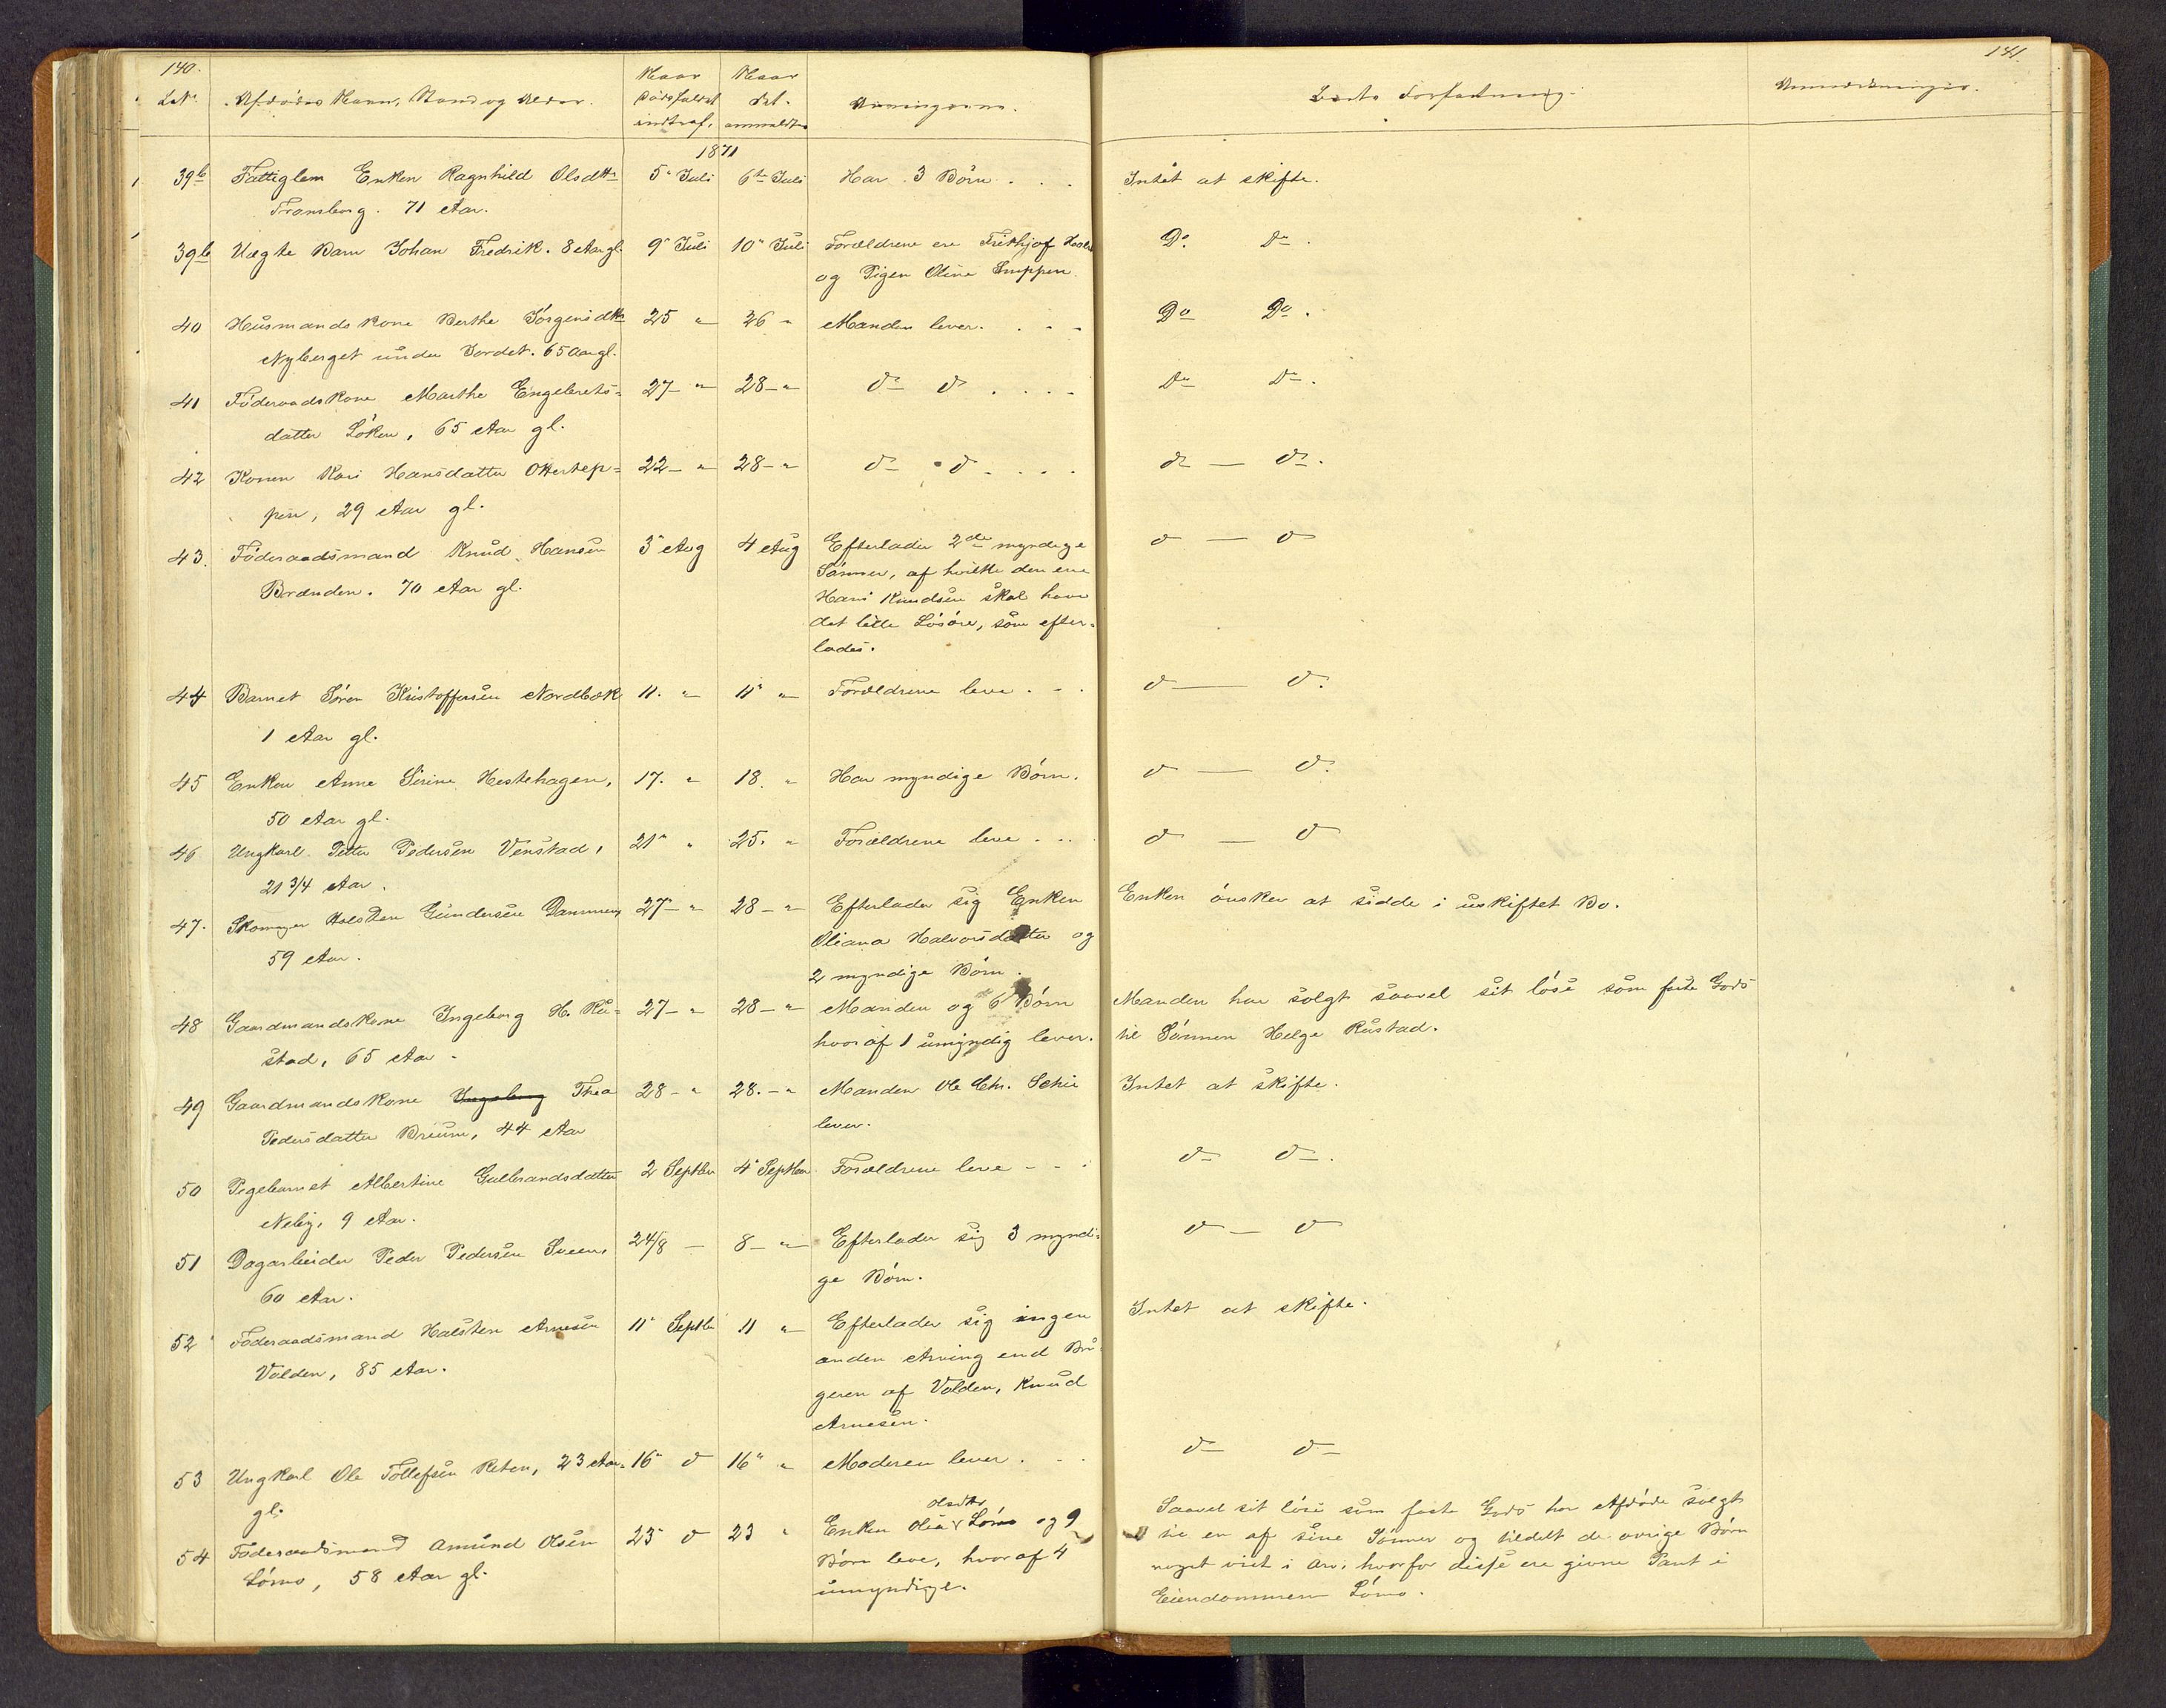 140.
LNo. Afdødes Navn, Stand og Alder. Naar Dødsfaldet indtraf. Naar det anmeldtes Arvingerne. Boets Forfatning. Anmærkninger. 141.
1871
39b Fattiglem Enken Ragnhild Olsdtr 5" Juli 6te Juli Har 3 Børn . . . Intet at skifte.
Fransberg. 71 Aar.
39b Uægte Barn Johan Fredrik. 8 Aar gl. 9" Juli 10" Juli Forældrene ere Frithjof Do. Do.
og Pigen Oline Snippen.
40 Husmandskone Berthe Jørgensdtr 25 " 26 " Manden lever. . . . Do Do.
Nyberget under Jordet. 65 Aar gl.
41 Føderaadskone Marthe Engebrets= 27 - " 28 - " do do . . . . Do Do.
datter Løken, 65 Aar gl.
42 Konen Kari Hansdatter Ottestep= 22 - " 28 - " do do . . . . do — do.
pen, 29 Aar gl.
43. Føderaadsmand Knud Hansen 3" Aug 4 Aug Efterlader 2de myndige do — do
Brænden. 70 Aar gl. Sønner, af hvilke den ene
Hans Knudsen skal have
det lidle Løsøre, som efter=
lades.
44 Barnet Søren Kristoffersen Nordbæk 11. " 11" " Forældrene leve . . . do — do.
1 Aar gl.
45 Enken Anne Sirine Hestehagen, 17. " 18. " Har myndige Børn. do — do.
50 Aar gl.
46 Ungkarl Petter Pedersen Venstad, 21" " 25. " Forældrene leve . . . do — do
21 3/4 Aar.
47. Skomager Halsten Gundersen Dammen, 27 - " 28 - " Efterlader sig Enken Enken ønsker at sidde i uskiftet Bo.
59 Aar. Oliana Halvorsdatter og
2 myndige Børn.
48 Gaardmandskone Ingeborg H. Ru= 27 - " 28 - " Manden og 6 Børn Manden har solgt saavel sit løse som faste Gods
stad, 65 Aar. hvoraf 1 umyndig lever. til Sønnen Helge Rustad.
49 Gaardmandskone Ingeborg Thea 28 - " 28. - " Manden Ole Chr. Schie Intet at skifte.
Pedersdatter Breum, 44 Aar lever.
50 Pigebarnet Albertine Gulbrandsdatter 2 Septbr 4" Septbr Forældrene leve - - . do do.
Neby, 9 Aar.
51 Dagarbeider Peder Pedersen Sveen, 24/8 — 8 - " Efterlader sig 3 myndi= do — do
60 Aar. ge Børn.
52 Føderaadsmand Halsten Arnesen 11" Septbr 11 " Efterlader sig ingen Intet at skifte.
Volden, 85 Aar. anden Arving end Bru=
geren af Volden, Knud
Arnesen.
53 Ungkarl Ole Tollefsen Reten, 23 Aar 16" do 16" " Moderen lever . . . do do
gl.
Olsdtr
54 Føderaadsmand Amund Olsen 23" do 23 " Enken Olea Lømo og 9 Saavel sit løse som faste Gods har Afdøde solgt
Lømo, 58 Aar gl. Børn leve, hvoraf 4 til en af sine Sønner og tildelt de øvrige Børn
umyndige. noget vist i Arv, hvorfor disse ere givne Pant i
Eiendommen Lømo.